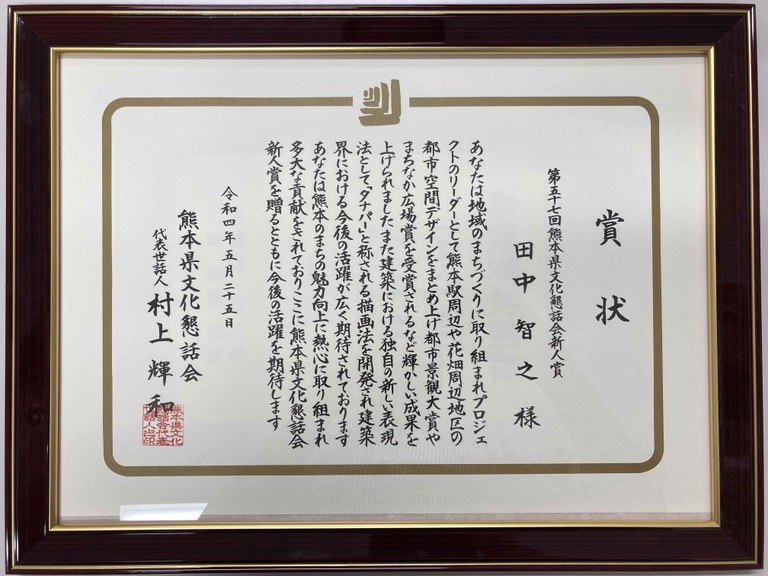 賞状
第五十七回熊本県文化懇話会新人賞
田中智之様
あなたは地域のまちづくりに取り組まれプロジェ
クトのリーダーとして熊本駅周辺や花畑周辺地区の
都市空間デザインをまとめ上げ都市景観大賞や
まちなか広場賞を受賞されるなど輝かしい成果を
上げられましたまた建築における独自の新しい表現
法として、「タナパー」と称される描画法を開発され建築
界における今後の活躍が広く期待されております
あなたは熊本のまちの魅力向上に熱心に取り組まれ
多大な貢献をされておりここに熊本県文化懇話会
新人賞を贈るとともに今後の活躍を期待します
令和四年五月二十五日
熊本県文化懇話会
代表世話人 村上輝和